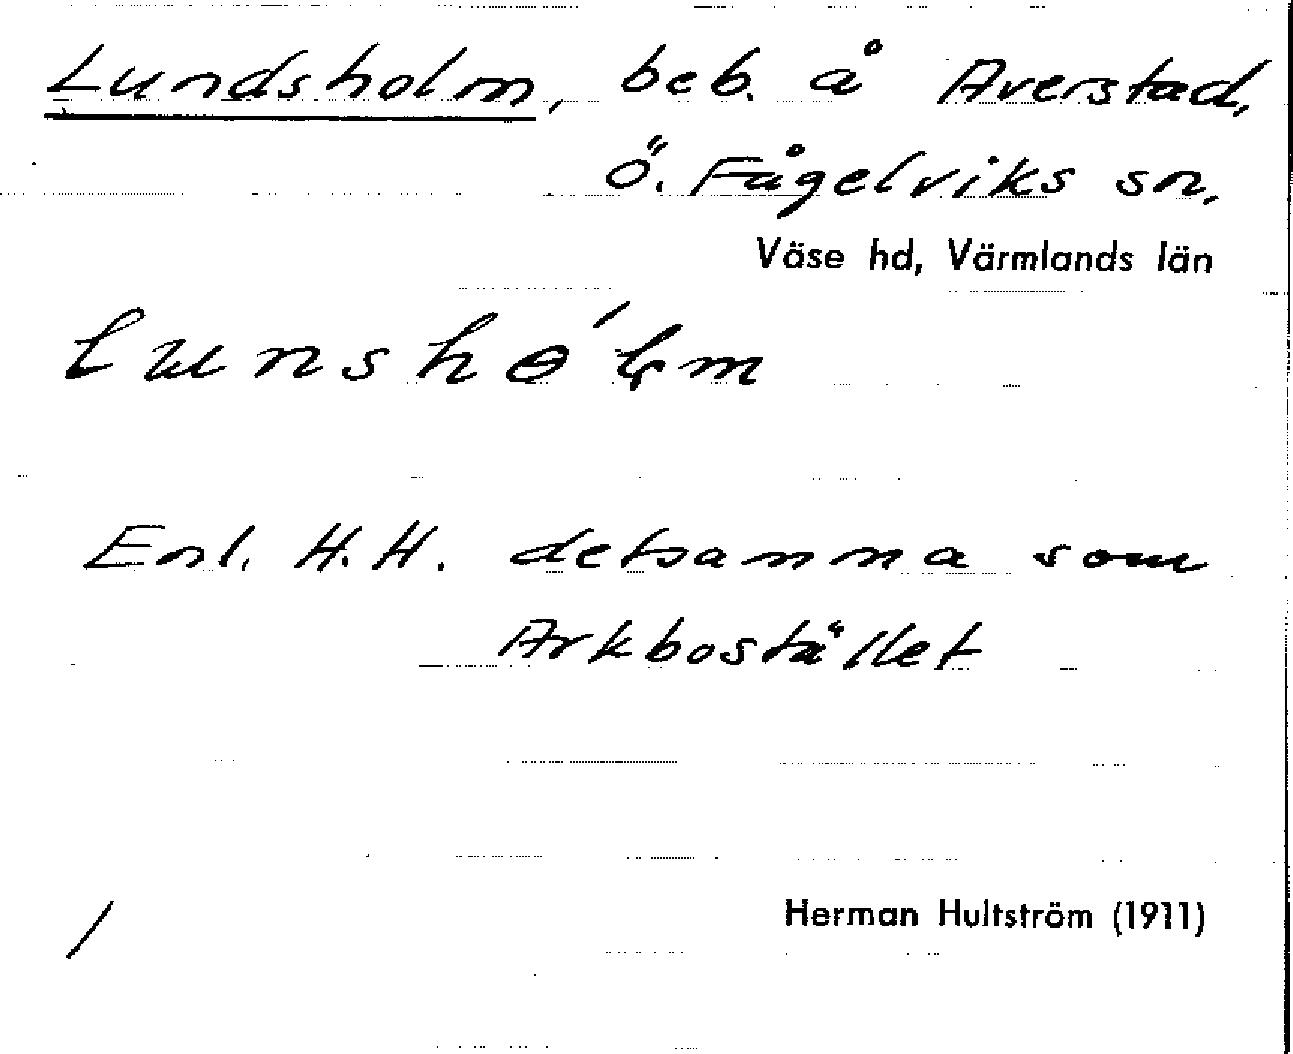 Lundsholm, beb. å Averstad,
Ö. Fågelviks sn,
Väse hd, Värmlands län
Enl. H.H. detsamma som
Arkbostället
Herman Hultström (1911)
/